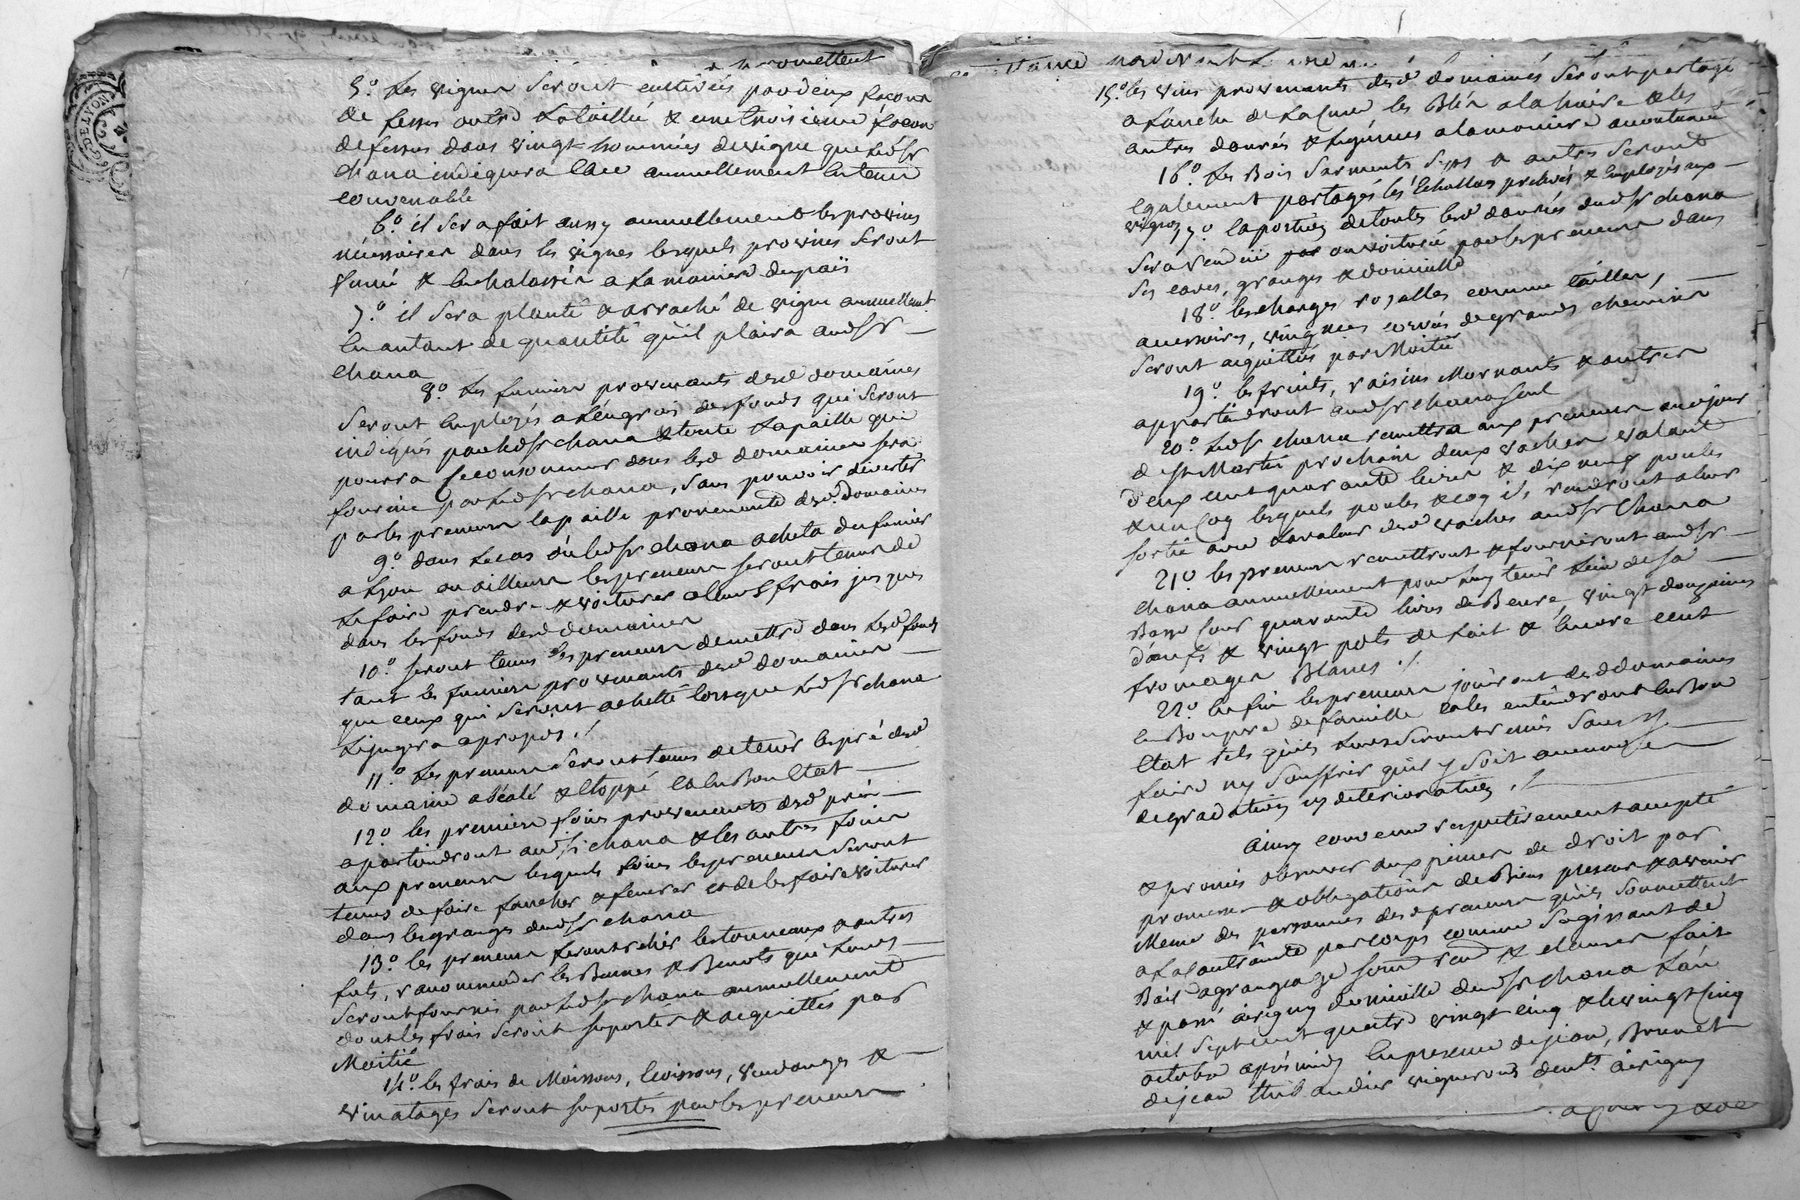 G. DE LYON
5.º Les vignes seront cultivées par deux façons
de fessou outre la taillie & une troisieme façon
de fessou dans vingt hommées de vigne que led sr
chana indiquera elle annuellement en tems
convenable
6.º il sera fait aussy annuellement les provins
nécessaires dans les vignes lesquels provins seront
fumé & echalassés a la maniere du païs
7.º il sera planté & arraché de vigne annuellemt.
en autant de quantité qu'il plaira aud sr
chana
8.º Les fumiers provenants desd domaines
seront employés a l'engrais des fonds qui seront
indiqués par led sr chana & toute la paille qui
pourra se consommer dans lesd domaines sera
fournie par led sr chana, sans pouvoir divertir
par les preneurs la paille provenante desd. domaines
9.º dans le cas où led sr chana acheta du fumier
a Lyon ou ailleurs les preneurs seront tenus de
le faire prendre & voiturer a leurs frais jusques
dans les fonds desd domaines
10.º seront tenus les preneurs de mettre dans lesd fonds
tant les fumiers provenants desd domaines
que ceux qui seront acheté lorsque led sr chana
le jugera apropos ./.
11.º Les preneurs seront tenus de tenir les pré desd
domaine & etoppé en bon Etat
12.º les premiers foins provenants desd prés
apartiendront aud sr chana & les autres foins
aux preneurs lesquels foins les preneurs seront
tenus de faire faucher & fener et de les faire voiturer
dans les granges dud sr chana
13.º les preneurs feront relier les tonneaux & autres
futs, racommoder les Bennes & Benots qui leurs
seront fournis par led sr chana annuellement
dont les frais seront suportés & acquittés par
Moitié
14.º les frais de Moissons, vendanges &
vinatages seront suportés par les preneurs
15.º les vins provenants desd domaines seront partagé
a l'anche de la Cuve les Bléz a la &
autres denrés & légumes a la maniere accoutumée
16.º Les Bois sarments seps & autres seront
egalement partagés les Echallas prelevés & Employés aux
vignes 17.º la portion de toutes lesd denrées dud sr chana
sera rendue ou voiturée par les preneurs dans
ses caves, granges & domicille
18.º les charges royalles comme tailles,
accessoires, vingtiémes corvées de grands chemins
seront acquittées par Moitié
19.º les fruits, raisins Mornants & autres
appartiendront aud sr chana seul
20.º Led sr chana remettra aux preneurs au jour
de st Martin prochain deux vaches valant
deux cent quarante livres & dix neuf poules
& un Coq lesquels poules & coq ils rendront a leur
sortie avec la valeur desd vaches aud sr Chana
21.º les preneurs remettront & fourniront aud sr
chana annuellement pour luy tenir lieu de sa
Basse Cour quarante livres de Beure, vingt douzaines
d'oeufs & vingt pots de Lait & encore cent
fromages Blancs ./.
22.º Enfin les preneurs jouiront desd domaines
en Bon pere de famille & les entretiendront en Bon
Etat tels qu'ils leurs seront remis sans y
faire ny souffrir qu'il y soit
degradation ny deterioration ./.
Ainsy convenu respectivement accepté
& promis observer aux peines de droit par
promesse & obligation de Biens present & avenir
Meme des personnes desd preneurs qu'ils soumettent
a la contrainte par corps comme s'agissant de
Bail a grangeage & clauses fait
& passé a irigny domicille dud sr chana L'an
mil sept cent quatre vingt cinq & le vingt Cinq
octobre après midy En presence de jean Brunet
de jean Thibaudier vignerons demts. a irigny